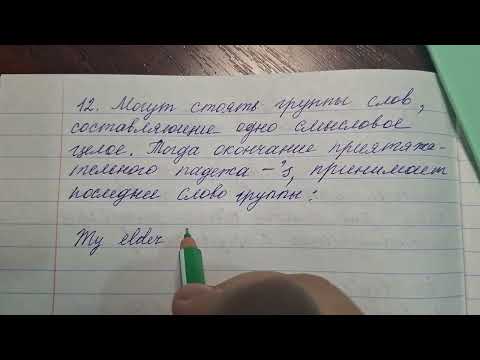 12. Могут стоять группы слов,
составляющие одно смысловое
целое. Тогда окончание притяжа-
тельного падежа –'s, принимает
последнее слово группы:
My elder